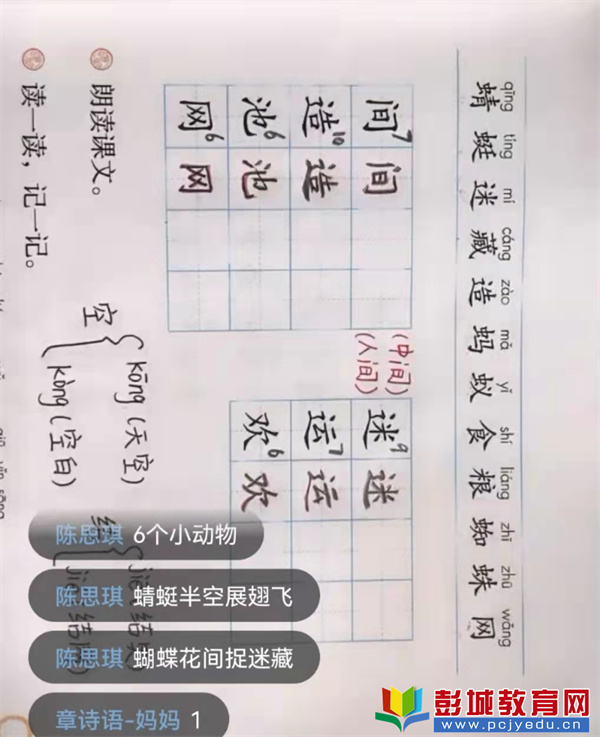 qīng tíng mí cáng zào mǎ yǐ shí liáng zhī zhū wǎng
蜻 蜓 迷 藏 造 蚂 蚁 食 粮 蜘 蛛 网
间7 间 (中间) (人间) 迷9 迷
造10 造 运7 运
池6 池 欢6 欢
网6 网
朗读课文。
空 kōng (天空)
kòng (空白)
读一读，记一记。
陈思琪 6个小动物
陈思琪 蜻蜓半空展翅飞
陈思琪 蝴蝶花间捉迷藏
章诗语-妈妈 1
彭城教育网
www.pcjyedu.cn